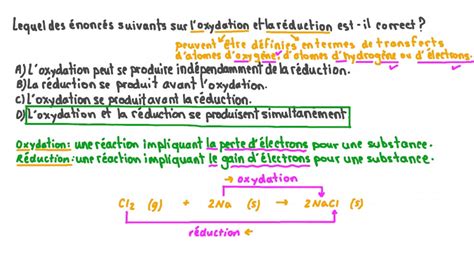 Lequel des énoncés suivants sur l'oxydation et la réduction est-il correct?
peuvent être définies en termes de transferts
d'atomes d'oxygène, d'atomes d'hydrogène ou d'électrons.
A) L'oxydation peut se produire indépendamment de la réduction.
B) La réduction se produit avant l'oxydation.
C) L'oxydation se produit avant la réduction.
D) L'oxydation et la réduction se produisent simultanément
Oxydation: une réaction impliquant la perte d'électrons pour une substance.
Réduction: une réaction impliquant le gain d'électrons pour une substance.
→ oxydation
Cl2 (g) + 2Na (s) → 2NaCl (s)
réduction ←